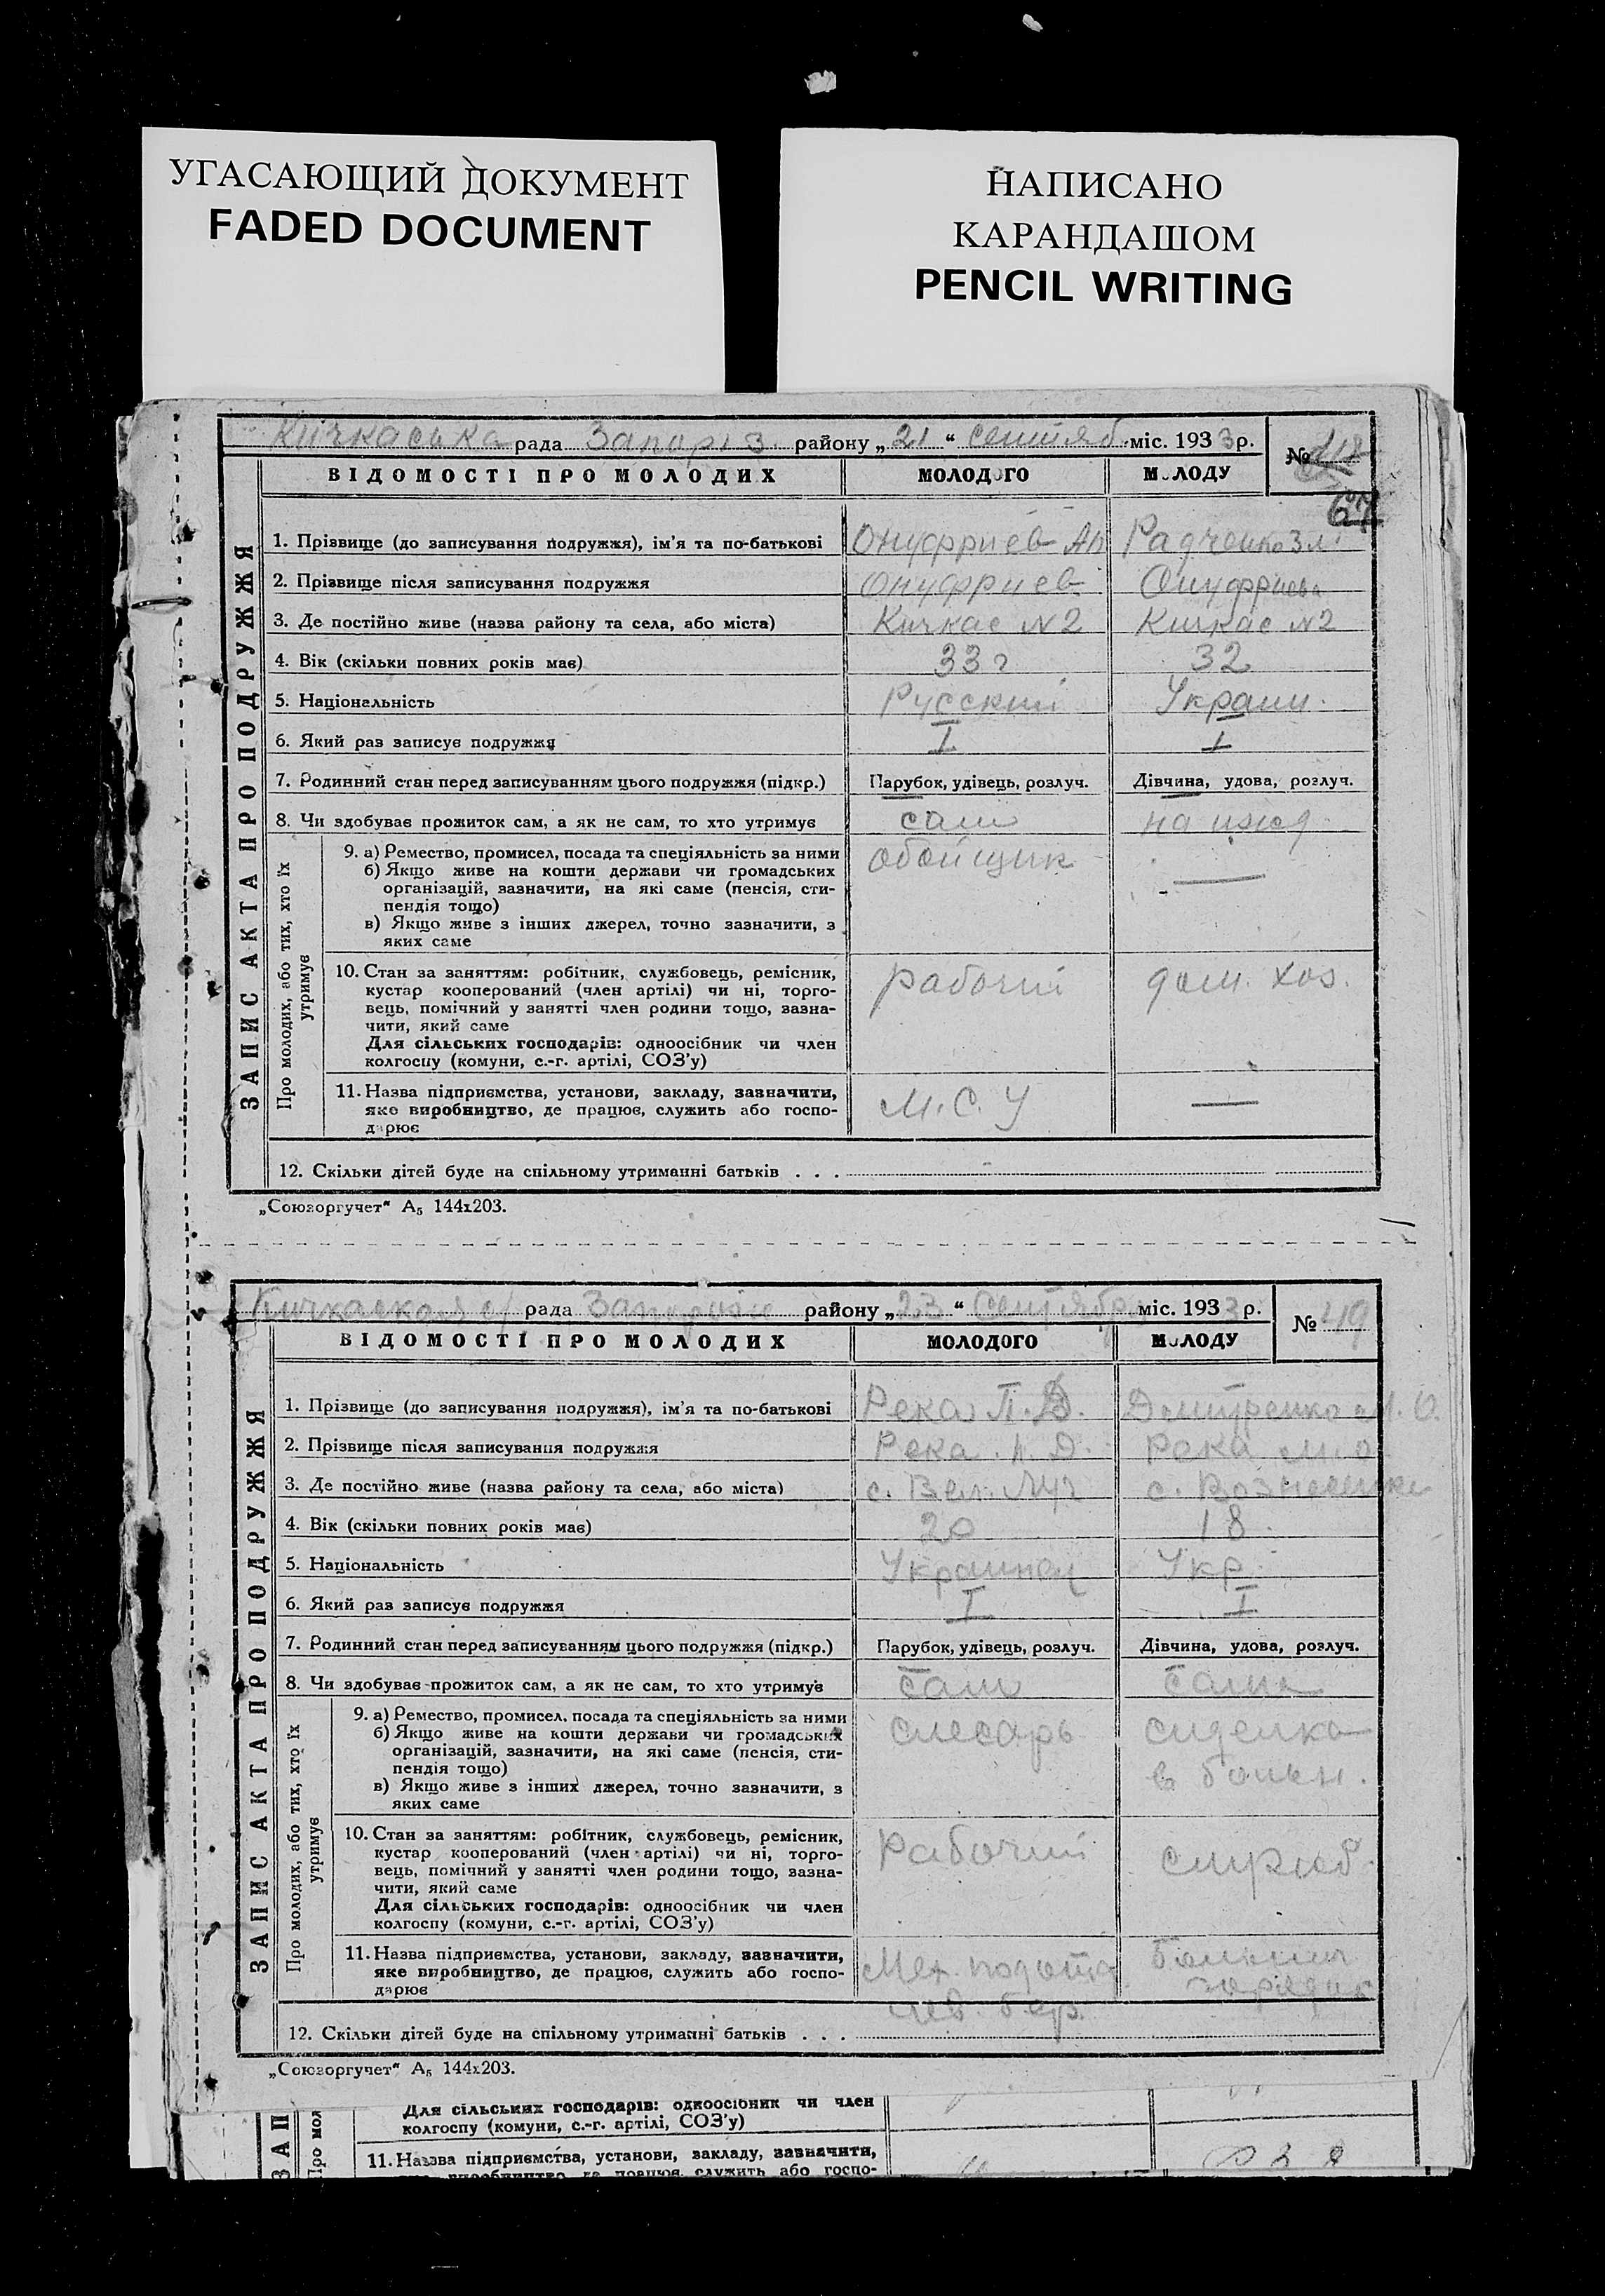 УГАСАЮЩИЙ ДОКУМЕНТ
FADED DOCUMENT
НАПИСАНО
КАРАНДАШОМ
PENCIL WRITING
Кичкаська рада Запоріз. району „21“ сентяб. міс. 1933 р. №
67
ВІДОМОСТІ ПРО МОЛОДИХ МОЛОДОГО МОЛОДУ
ЗАПИС АКТА ПРО ПОДРУЖЖЯ
1. Прізвище (до записування подружжя), ім’я та по-батькові Онуфриев Ап Радченко
2. Прізвище після записування подружжя Онуфриев Онуфриева
3. Де постійно живе (назва району та села, або міста) Кичкас №2 Кичкас №2
4. Вік (скільки повних років має) 33 г 32
5. Національність Русский Украин.
6. Який раз записує подружжя I I
7. Родинний стан перед записуванням цього подружжя (підкр.) Парубок, удівець, розлуч. Дівчина, удова, розлуч.
8. Чи здобуває прожиток сам, а як не сам, то хто утримує сам на ижд
Про молодих, або тих, хто їх
утримує
9. а) Ремество, промисел, посада та спеціяльність за ними обойщик —
б) Якщо живе на кошти держави чи громадських
організацій, зазначити, на які саме (пенсія, сти-
пендія тощо)
в) Якщо живе з інших джерел, точно зазначити, з
яких саме
10. Стан за заняттям: робітник, службовець, ремісник, рабочий дом. хоз.
кустар кооперований (член артілі) чи ні, торго-
вець, помічний у занятті член родини тощо, зазна-
чити, який саме
Для сільських господарів: одноосібник чи член
колгоспу (комуни, с.-г. артілі, СОЗ’у)
11. Назва підприємства, установи, закладу, зазначити, М.С.У —
яке виробництво, де працює, служить або госпо-
дарює
12. Скільки дітей буде на спільному утриманні батьків . . .
„Союзоргучет“ А₅ 144х203.
Кичкаская с/ рада Запоріж району „23“ Сентября міс. 1933 р. № 419
ВІДОМОСТІ ПРО МОЛОДИХ МОЛОДОГО МОЛОДУ
ЗАПИС АКТА ПРО ПОДРУЖЖЯ
1. Прізвище (до записування подружжя), ім’я та по-батькові Река П. Д. Дмитренко М. О.
2. Прізвище після записування подружжя Река П. Д. Река М. О
3. Де постійно живе (назва району та села, або міста) с. Вел. Луг с. Вознесенка
4. Вік (скільки повних років має) 20 18
5. Національність Украинец Укр.
6. Який раз записує подружжя I I
7. Родинний стан перед записуванням цього подружжя (підкр.) Парубок, удівець, розлуч. Дівчина, удова, розлуч.
8. Чи здобуває прожиток сам, а як не сам, то хто утримує сам сама
Про молодих, або тих, хто їх
утримує
9. а) Ремество, промисел, посада та спеціяльність за ними слесарь сиделка
б) Якщо живе на кошти держави чи громадських в больн.
організацій, зазначити, на які саме (пенсія, сти-
пендія тощо)
в) Якщо живе з інших джерел, точно зазначити, з
яких саме
10. Стан за заняттям: робітник, службовець, ремісник, Рабочий служ
кустар кооперований (член артілі) чи ні, торго-
вець, помічний у занятті член родини тощо, зазна-
чити, який саме
Для сільських господарів: одноосібник чи член
колгоспу (комуни, с.-г. артілі, СОЗ’у)
11. Назва підприємства, установи, закладу, зазначити, Мех.
яке виробництво, де працює, служить або госпо-
дарює лев. бер.
12. Скільки дітей буде на спільному утриманні батьків . . .
„Союзоргучет“ А₅ 144х203.
ЗАП
Про мол
Для сільських господарів: одноосібник чи член
колгоспу (комуни, с.-г. артілі, СОЗ’у)
11. Назва підприємства, установи, закладу, зазначити,
виробництво, де працює, служить або госпо-